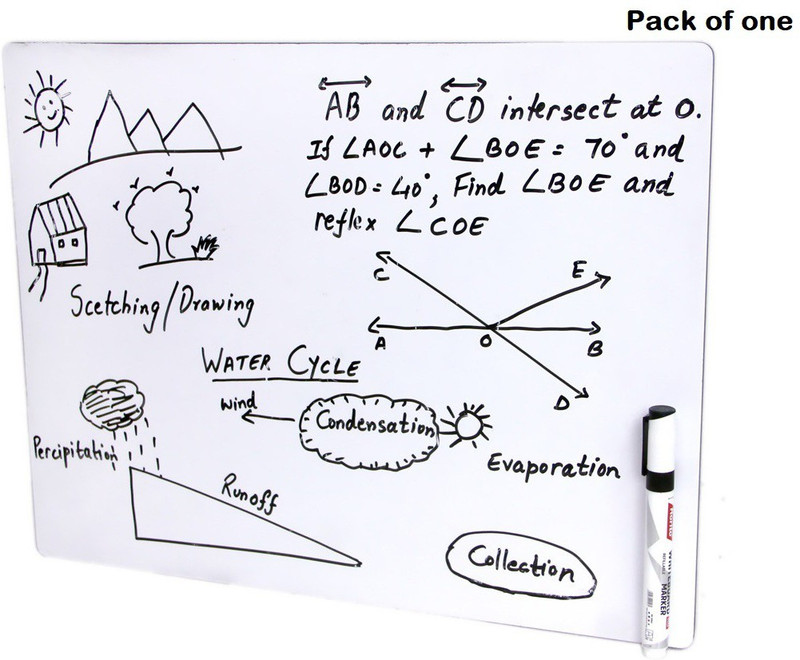 Pack of one
AB and CD intersect at O.
If ∠AOC + ∠BOE = 70° and
∠BOD = 40°, Find ∠BOE and
reflex ∠COE
C
E
A
O
B
D
Scetching/Drawing
WATER CYCLE
wind
Condensation
Percipitation
Evaporation
Runoff
Collection
MARKER